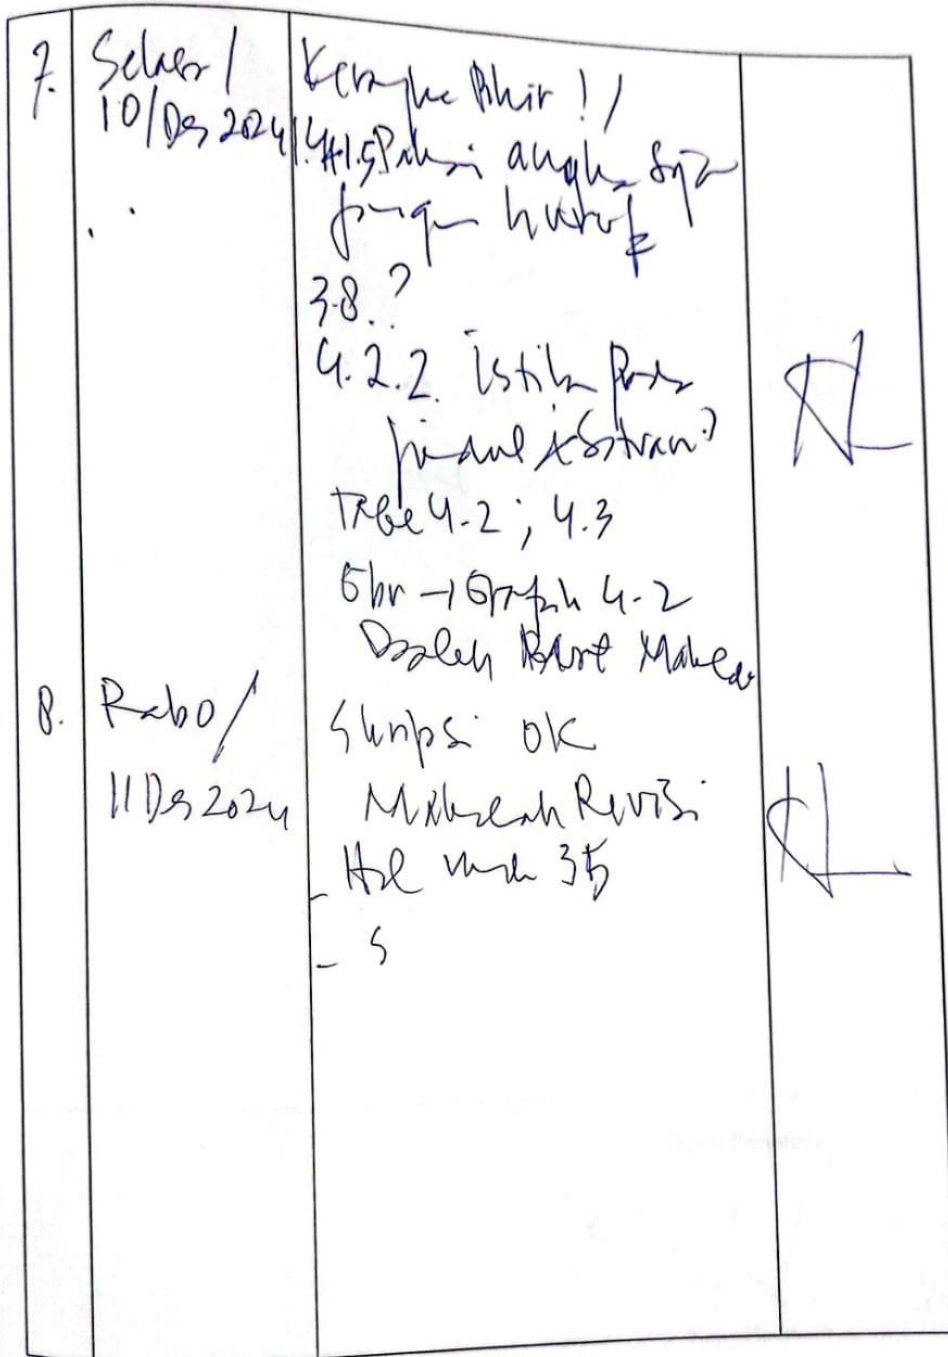 7. Selasa /
10/Des 2024
Kerangka Pikir ! /
1.4 + 1.5 Pakai angka saja
jangan huruf
3.8.?
4.2.2. istilah pada
judul
Tabel 4.2 ; 4.3
Gbr → Grafik 4.2
8. Rabo /
11 Des 2024
Skripsi OK
Makalah Revisi
- Hal 35
- S